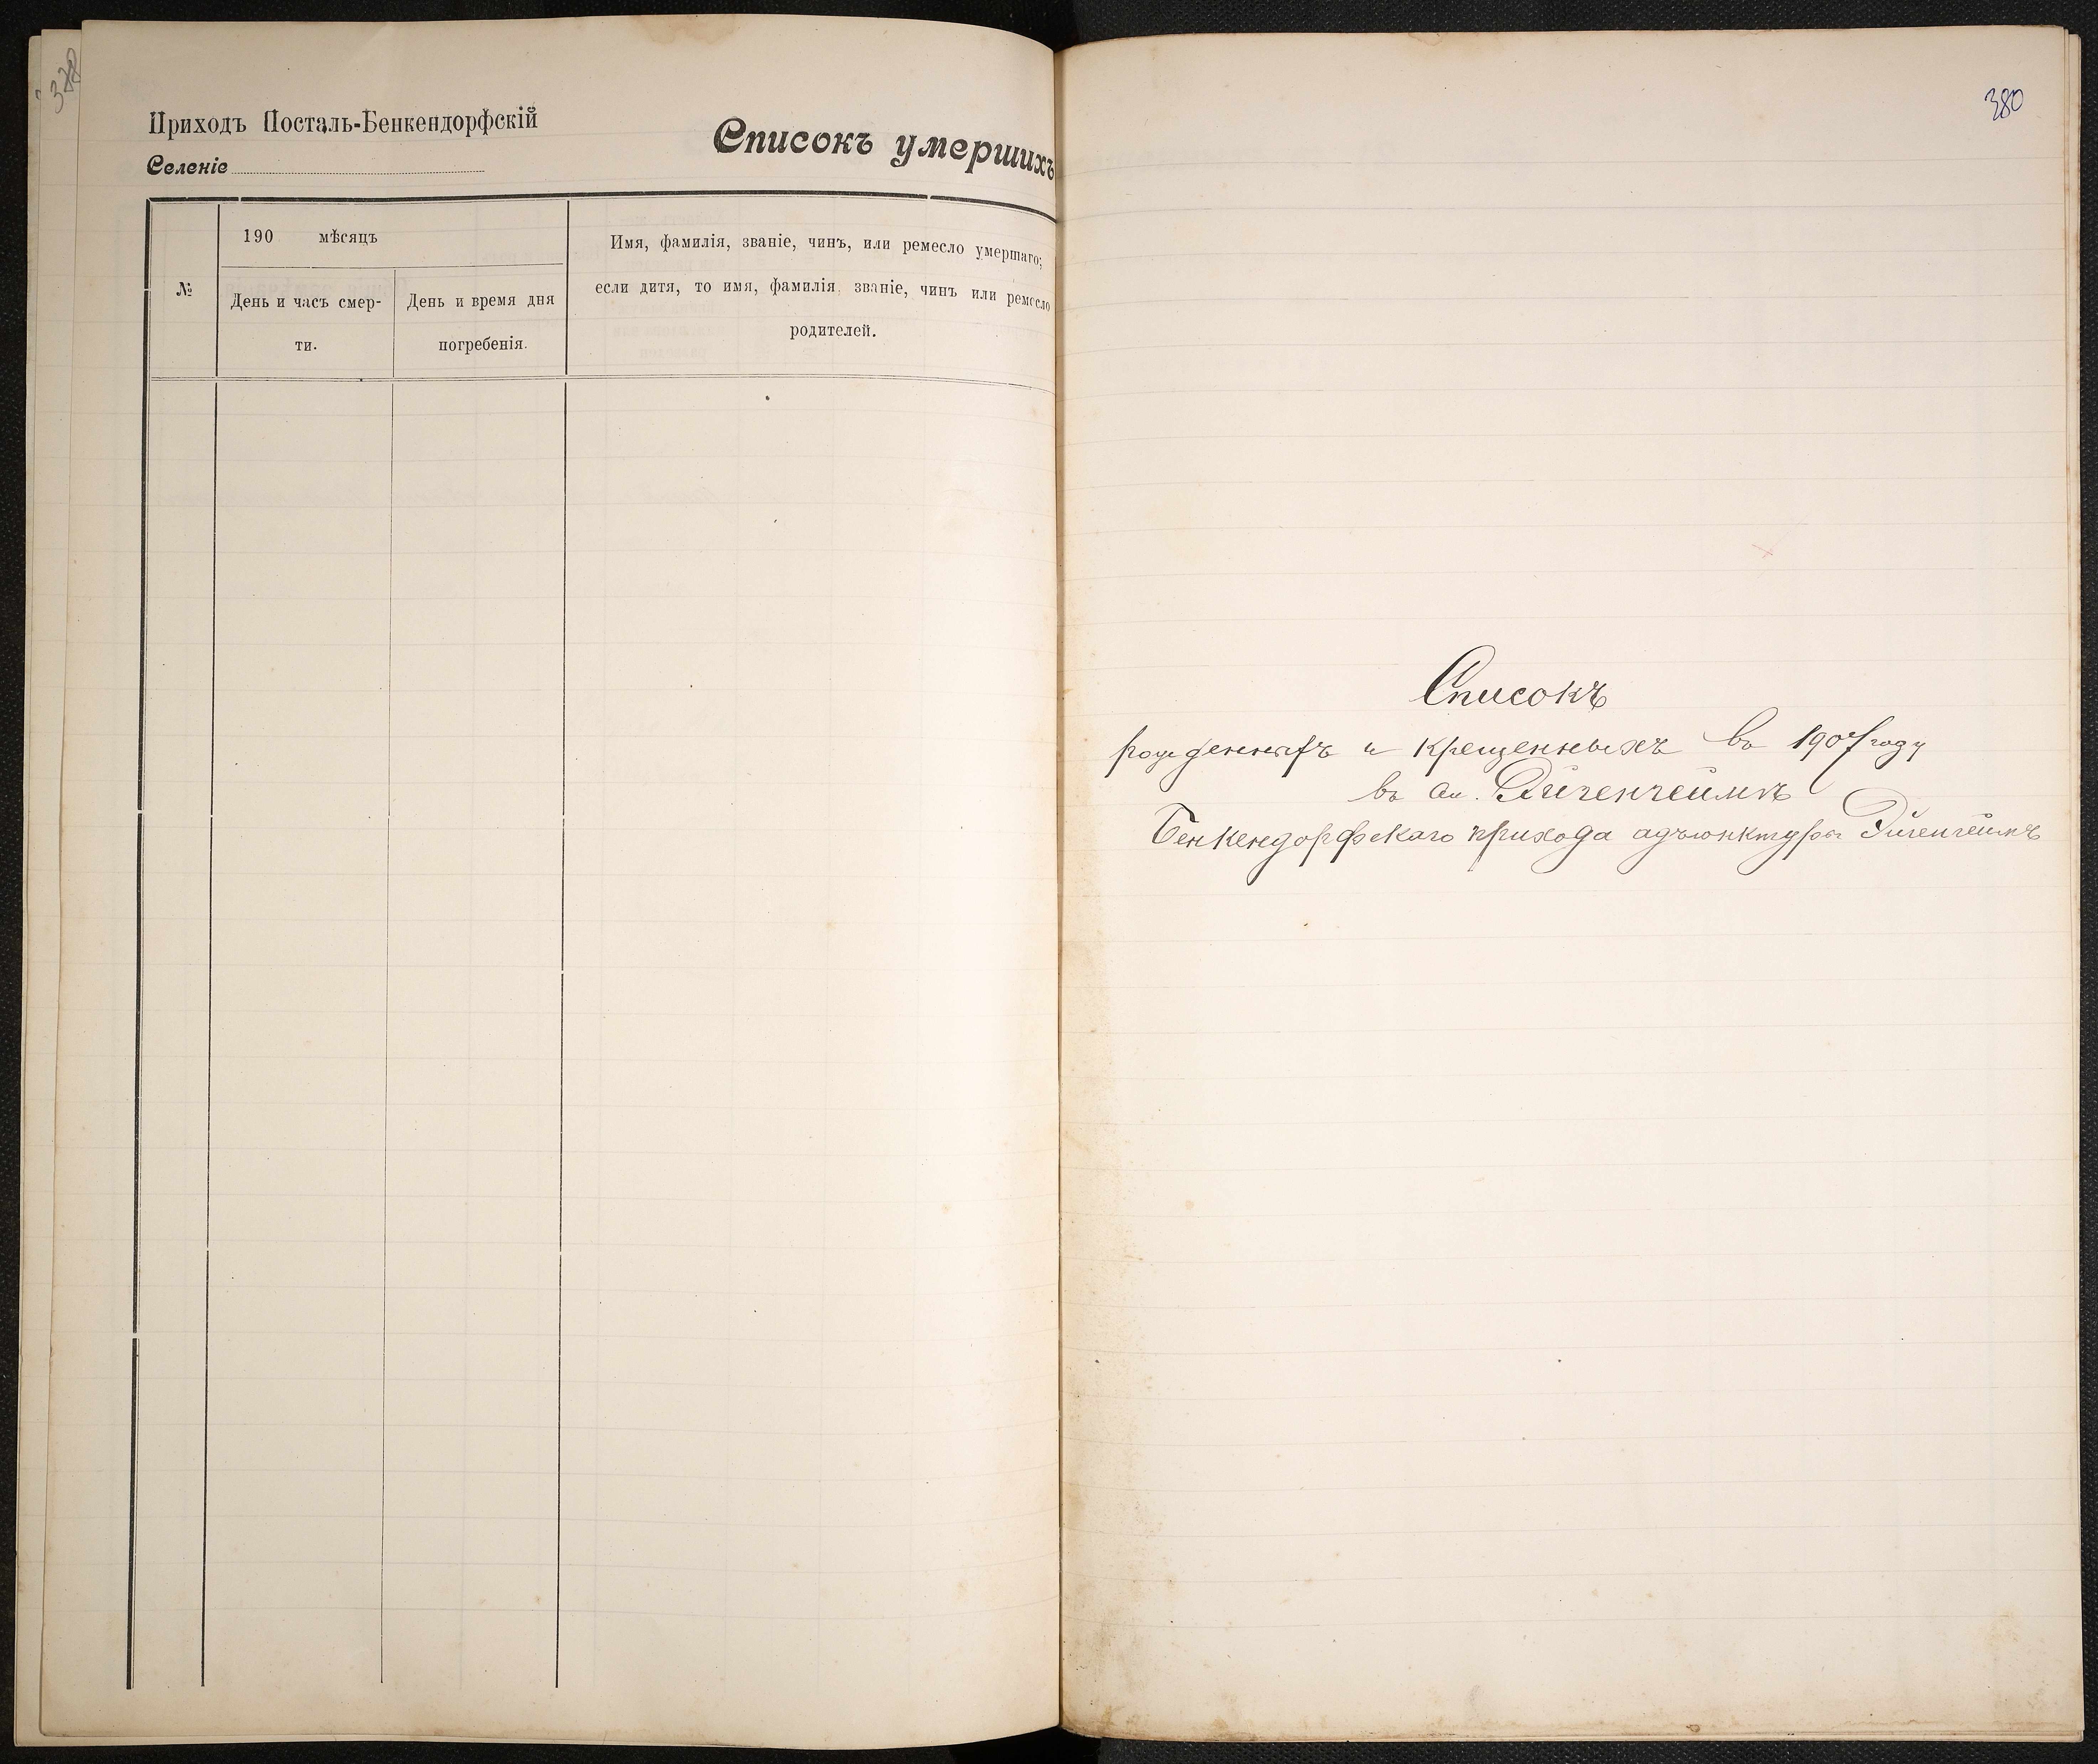 338
Приходъ Посталь-Бенкендорфскій
Селеніе
Списокъ умершихъ
№
190 мѣсяцъ
День и часъ смер-
ти.
День и время дня
погребенія.
Имя, фамилія, званіе, чинъ, или ремесло умершаго;
если дитя, то имя, фамилія, званіе, чинъ или ремесло
родителей.
380
Списокъ
рожденныхъ и крещенныхъ въ 1907 году
въ с. Эйгенгеймъ
Бенкендорфскаго прихода адъюнктуры Эйгенгеймъ